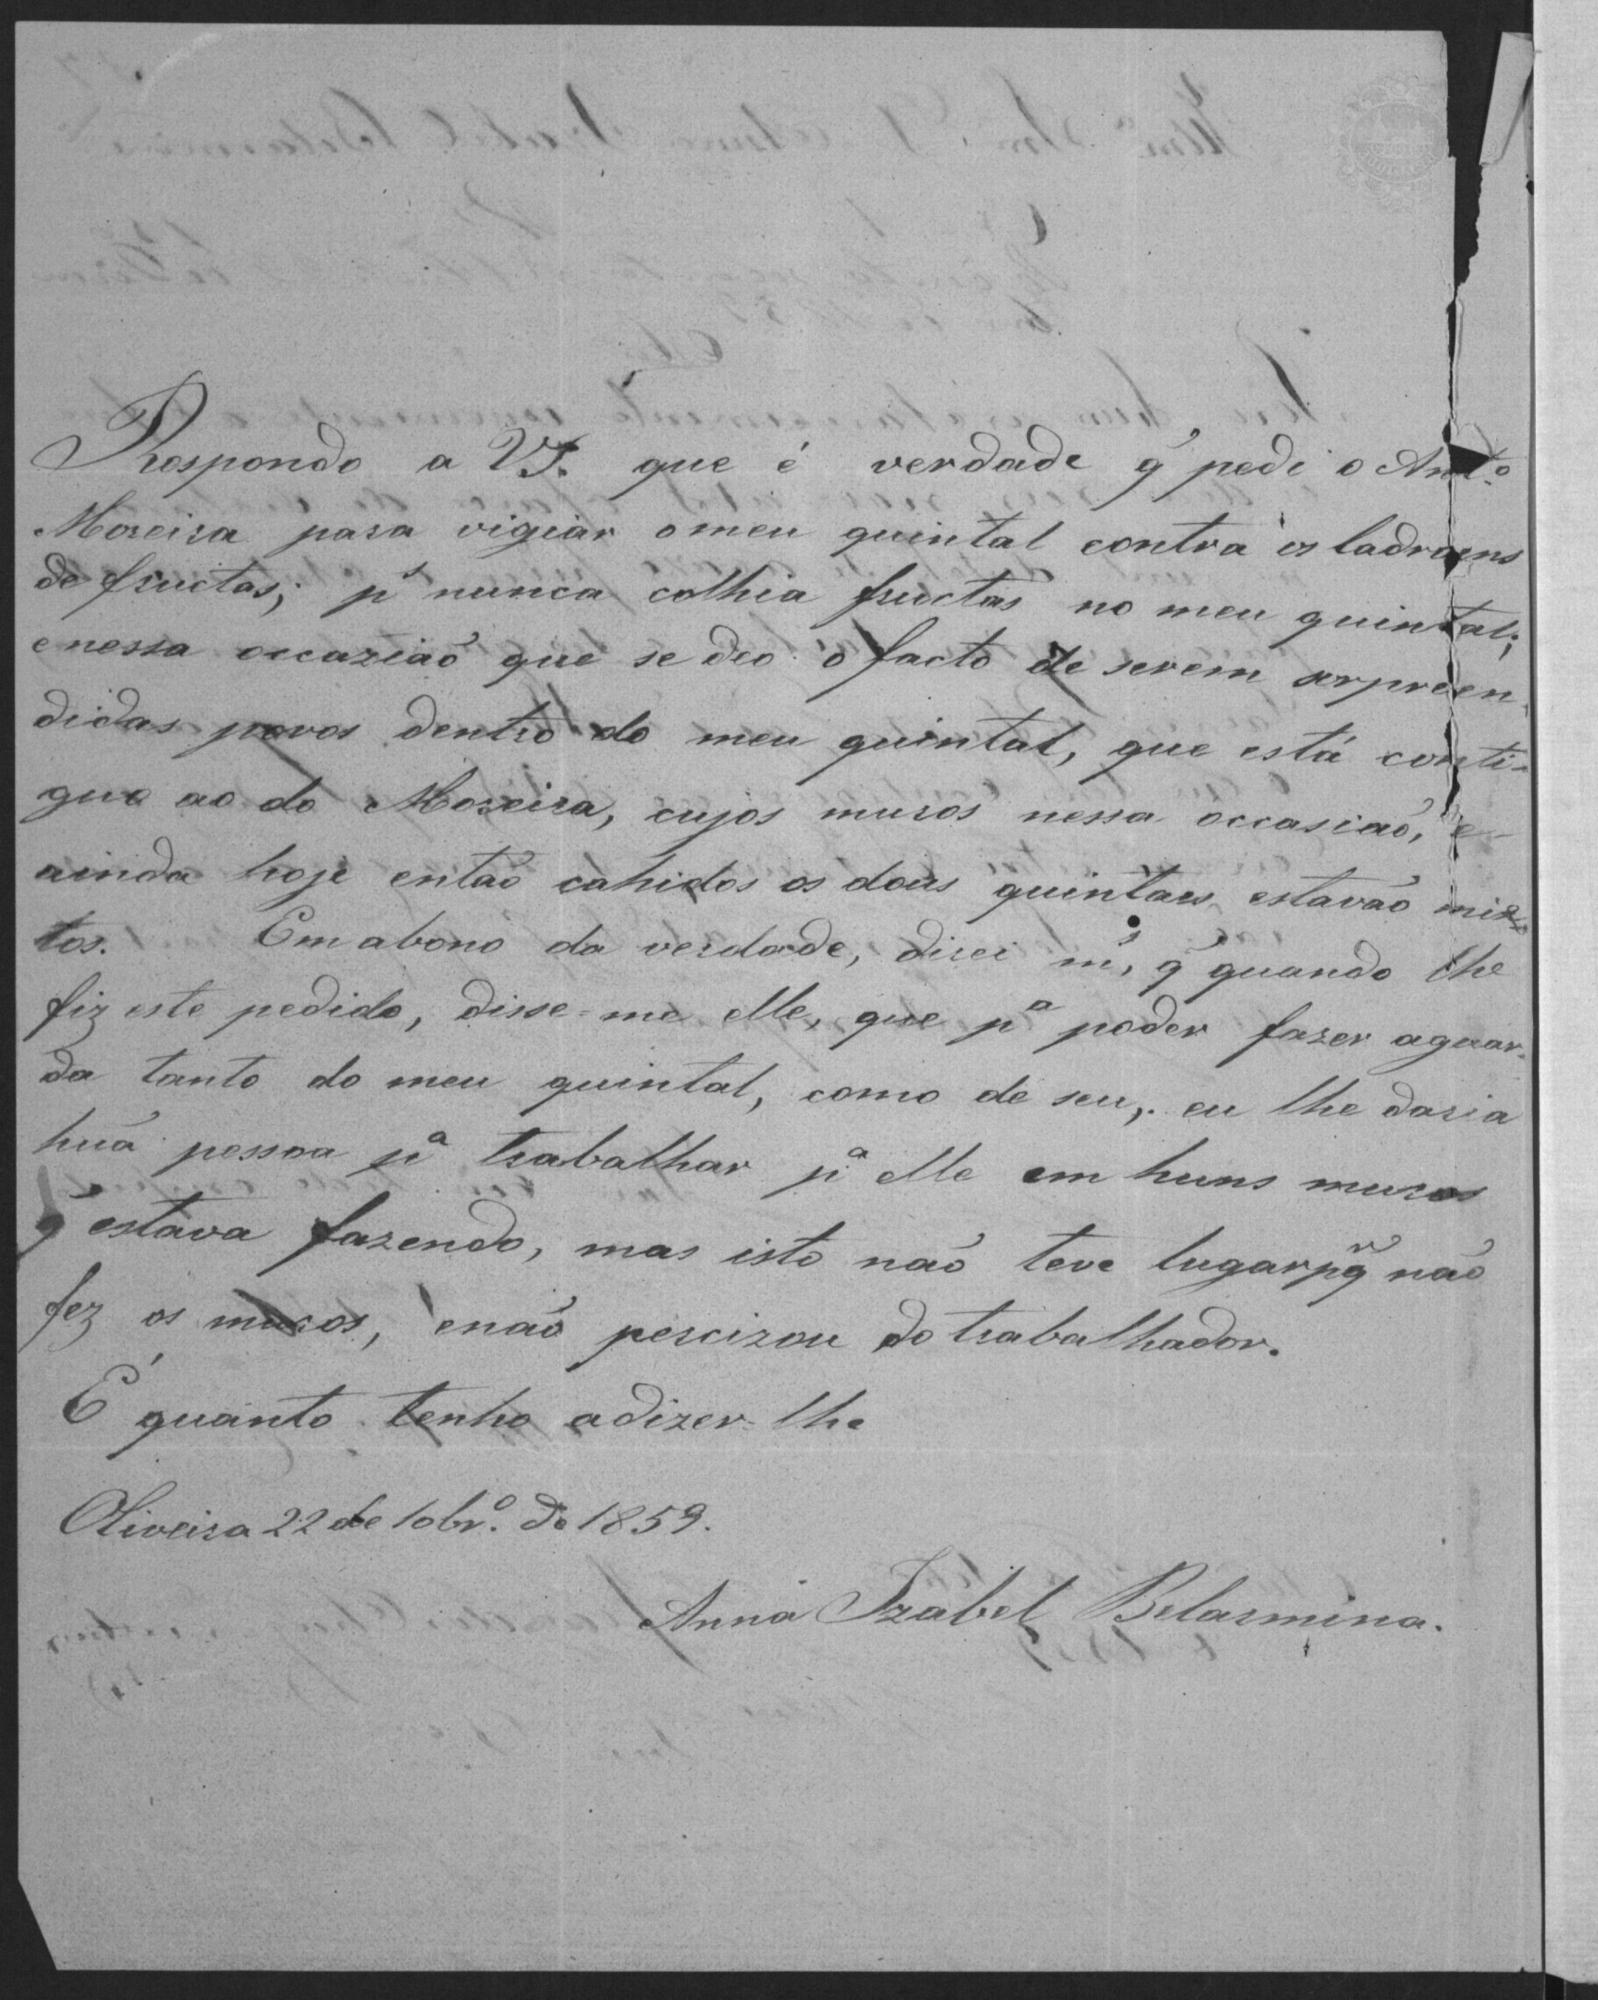 Respondo a VS. que é verdade q̃ pedi o Antº
Moreira para vigiar o meu quintal contra os ladroens
de fructas; pˢ nunca colhia fructas no meu quintal;
e nessa occaziaõ que se deo o facto de serem sorpreen-
didas povos dentro do meu quintal, que está conti-
guo ao do Moreira, cujos muros nessa occasiaõ, e
ainda hoje entaõ cahidos os dous quintaes estavaõ mix-
tos. Em abono da verdade, direi mˢ, q̃ quando lhe
fiz este pedido, disse-me elle, que pª poder fazer aguar-
da tanto do meu quintal, como de seu, eu lhe daria
huã pessoa pª trabalhar pª elle em huns muros
q̃ estava fazendo, mas isto naõ teve lugar pr q̃ naõ
fez os muros, e naõ percizou do trabalhador.
É quanto tenho a dizer-lhe
Oliveira 22 de 10brº. de 1859.
Anna Izabel Belarmina.